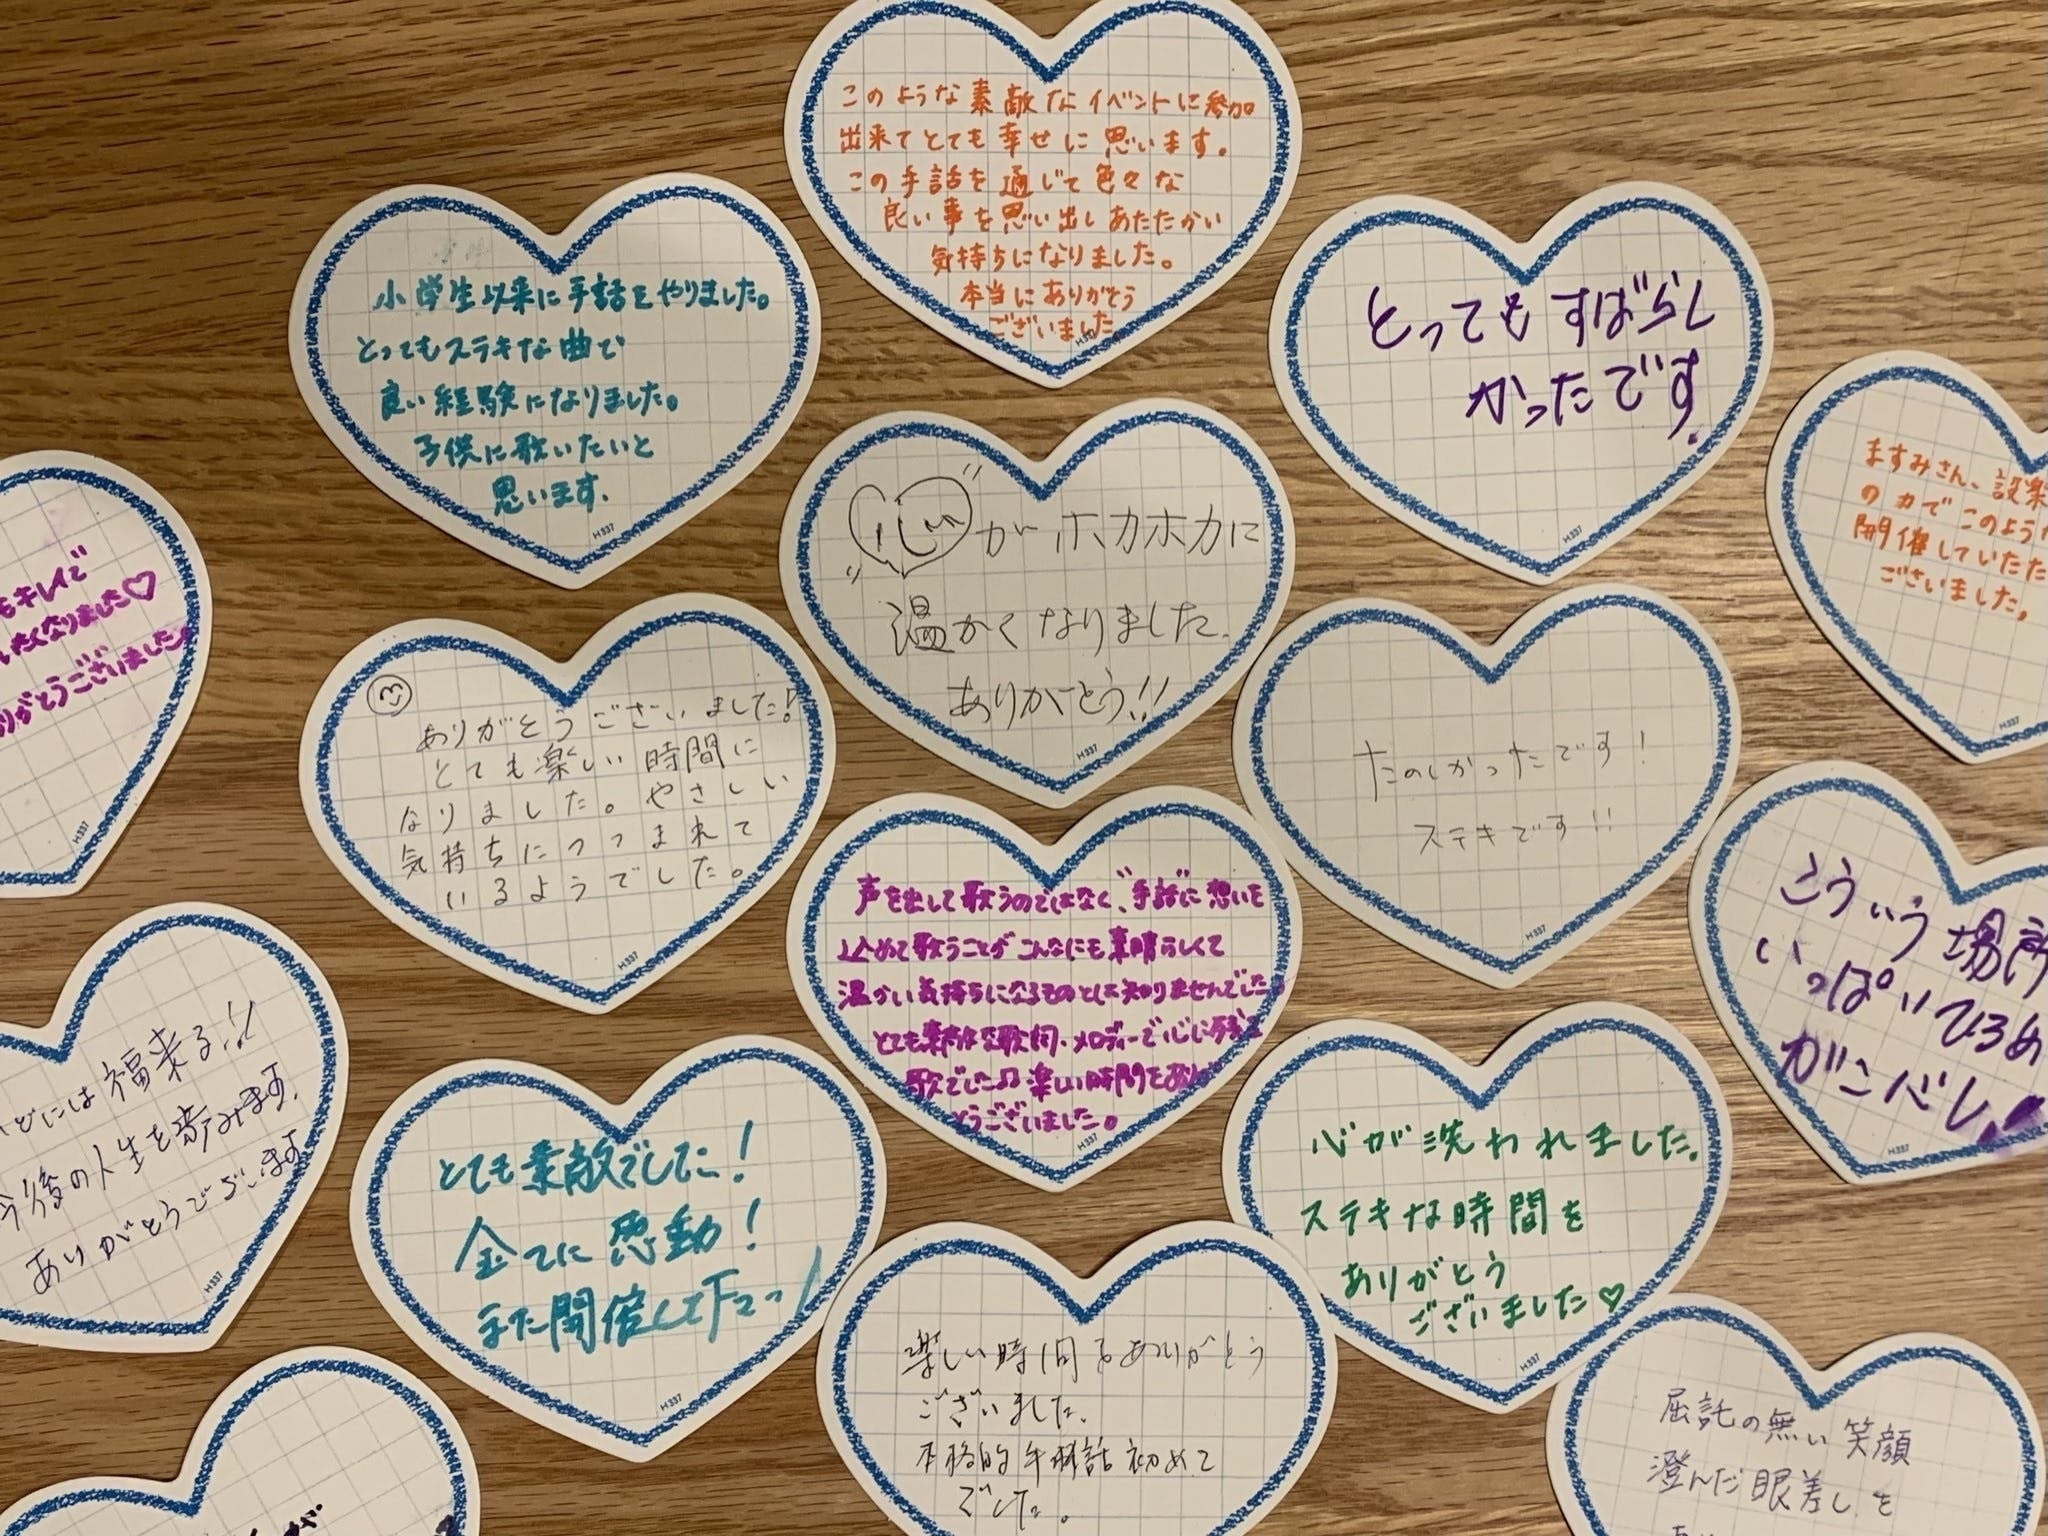 このような素敵なイベントに参加
出来てとても幸せに思います。
この手話を通じて色々な
良い事を思い出しあたたかい
気持ちになりました。
本当にありがとう
ございました
H337
小学生以来に手話をやりました。
とってもステキな曲で
良い経験になりました。
子供に歌いたいと
思います.
H337
とってもすばらし
かったです.
H337
ますみさん、設楽
の力でこのよう
開催していただ
ございました。
H337
心がホカホカに
温かくなりました.
ありがとう!!
H337
もキレイで
たくなりました♡
りがとうございました。
H337
ありがとうございました!
とても楽しい時間に
なりました。やさしい
気持ちにつつまれて
いるようでした。
H337
たのしかったです!
ステキです!!
H337
声を出して歌うのではなく、"手話"に想いを
込めて歌うことがこんなにも素晴らしくて
温かい気持ちになるものとは知りませんでした。
とても素敵な歌詞・メロディーで心に残る
歌でした♫楽しい時間をありが
とうございました。
H337
こういう場所
いっぱいひろめ
がんばし
H337
どには福来る!!
今後の人生を歩みます.
ありがとうございます
H337
とても素敵でした!
全てに感動!
また開催して下さいっ!
H337
心が洗われました.
ステキな時間を
ありがとう
ございました♡
H337
楽しい時間をありがとう
ございました.
本格的手話初めて
でした。
屈託の無い笑顔
澄んだ眼差しを
が